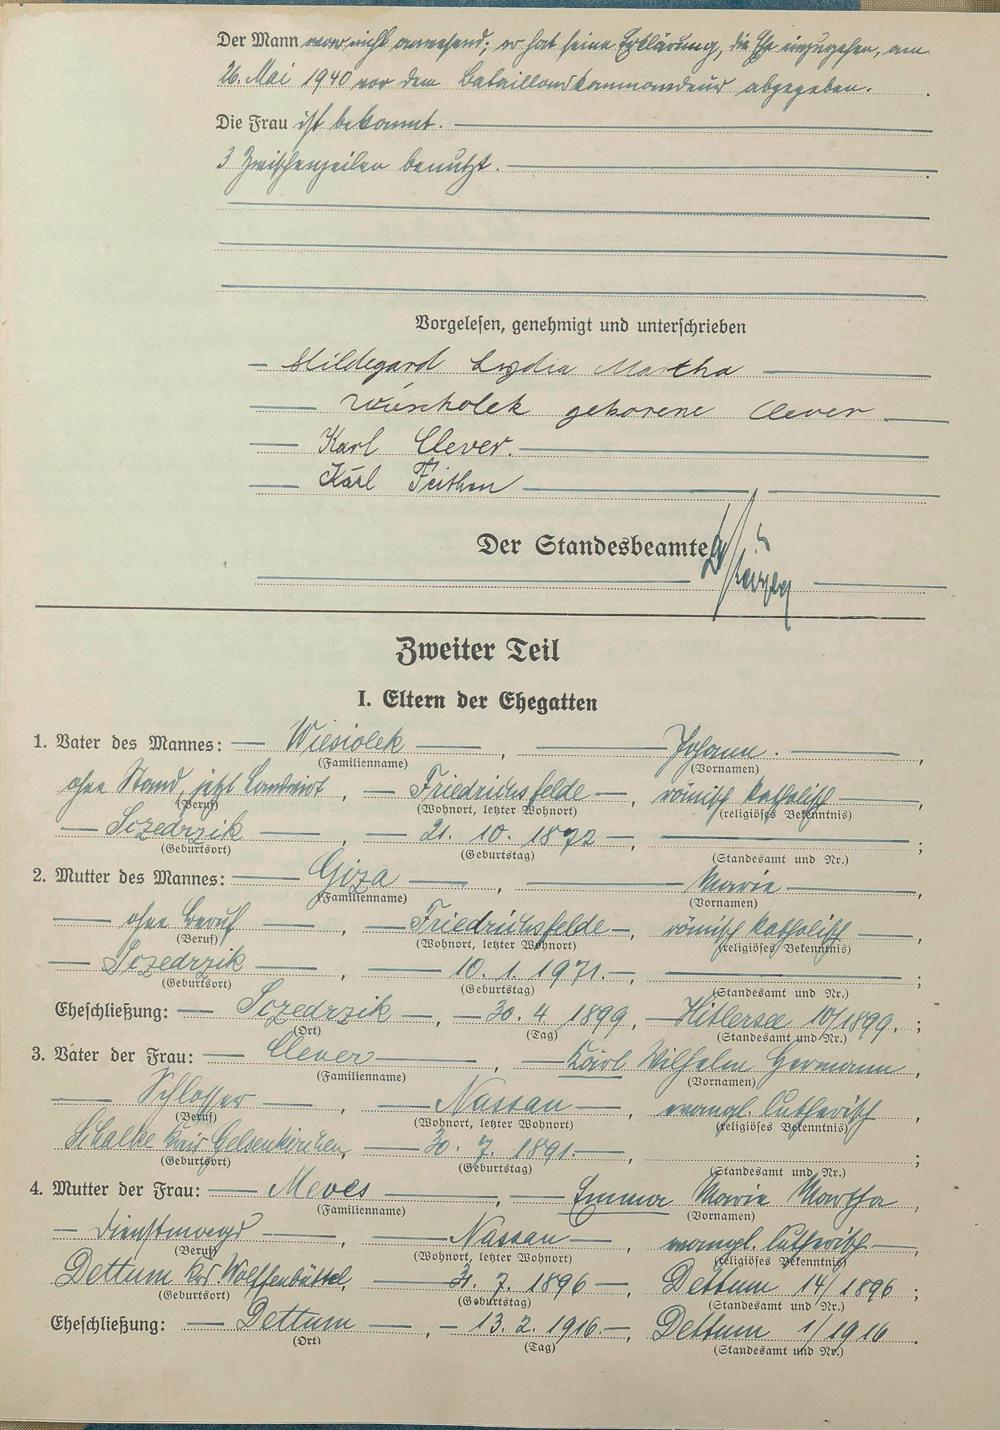 Der Mann war nicht anwesend; er hat seine Erklärung, die Ehe einzugehen, am
26. Mai 1940 vor dem Bataillonskommandeur abgegeben.
Die Frau ist bekannt.
3 Zwischenzeilen benutzt.
Vorgelesen, genehmigt und unterschrieben
Hildegard Lydia Martha
geborene Clever
Karl Clever.
Karl
Der Standesbeamte
Zweiter Teil
I. Eltern der Ehegatten
1. Vater des Mannes: Wiesiolek, Johann.,
(Familienname) (Vornamen)
ohne Stand, jetzt Landwirt, Friedrichsfelde, römisch katholisch,
(Beruf) (Wohnort, letzter Wohnort) (religiöses Bekenntnis)
Sczedrzik, 21. 10. 1872, ;
(Geburtsort) (Geburtstag) (Standesamt und Nr.)
2. Mutter des Mannes: Giza, Marie,
(Familienname) (Vornamen)
ohne Beruf, Friedrichsfelde, römisch katholisch,
(Beruf) (Wohnort, letzter Wohnort) (religiöses Bekenntnis)
Sczedrzik, 10. 1. 1971., ;
(Geburtsort) (Geburtstag) (Standesamt und Nr.)
Eheschließung: Sczedrzik, 30. 4. 1899, Hitlersee 10/1899. ;
(Ort) (Tag) (Standesamt und Nr.)
3. Vater der Frau: Clever, Karl Wilhelm Hermann,
(Familienname) (Vornamen)
Schlosser, Nassau, evangl. lutherisch,
(Beruf) (Wohnort, letzter Wohnort) (religiöses Bekenntnis)
Schalke Kreis Gelsenkirchen, 30. 7. 1891, ;
(Geburtsort) (Geburtstag) (Standesamt und Nr.)
4. Mutter der Frau: Meves, Emma Marie Martha,
(Familienname) (Vornamen)
Dienstmagd, Nassau, evangl. lutherisch,
(Beruf) (Wohnort, letzter Wohnort) (religiöses Bekenntnis)
Dettum Krs. Wolffenbüttel, 7. 1896, Dettum 14/1896 ;
(Geburtsort) (Geburtstag) (Standesamt und Nr.)
Eheschließung: Dettum, 13. 2. 1916., Dettum 1/1916
(Ort) (Tag) (Standesamt und Nr.)